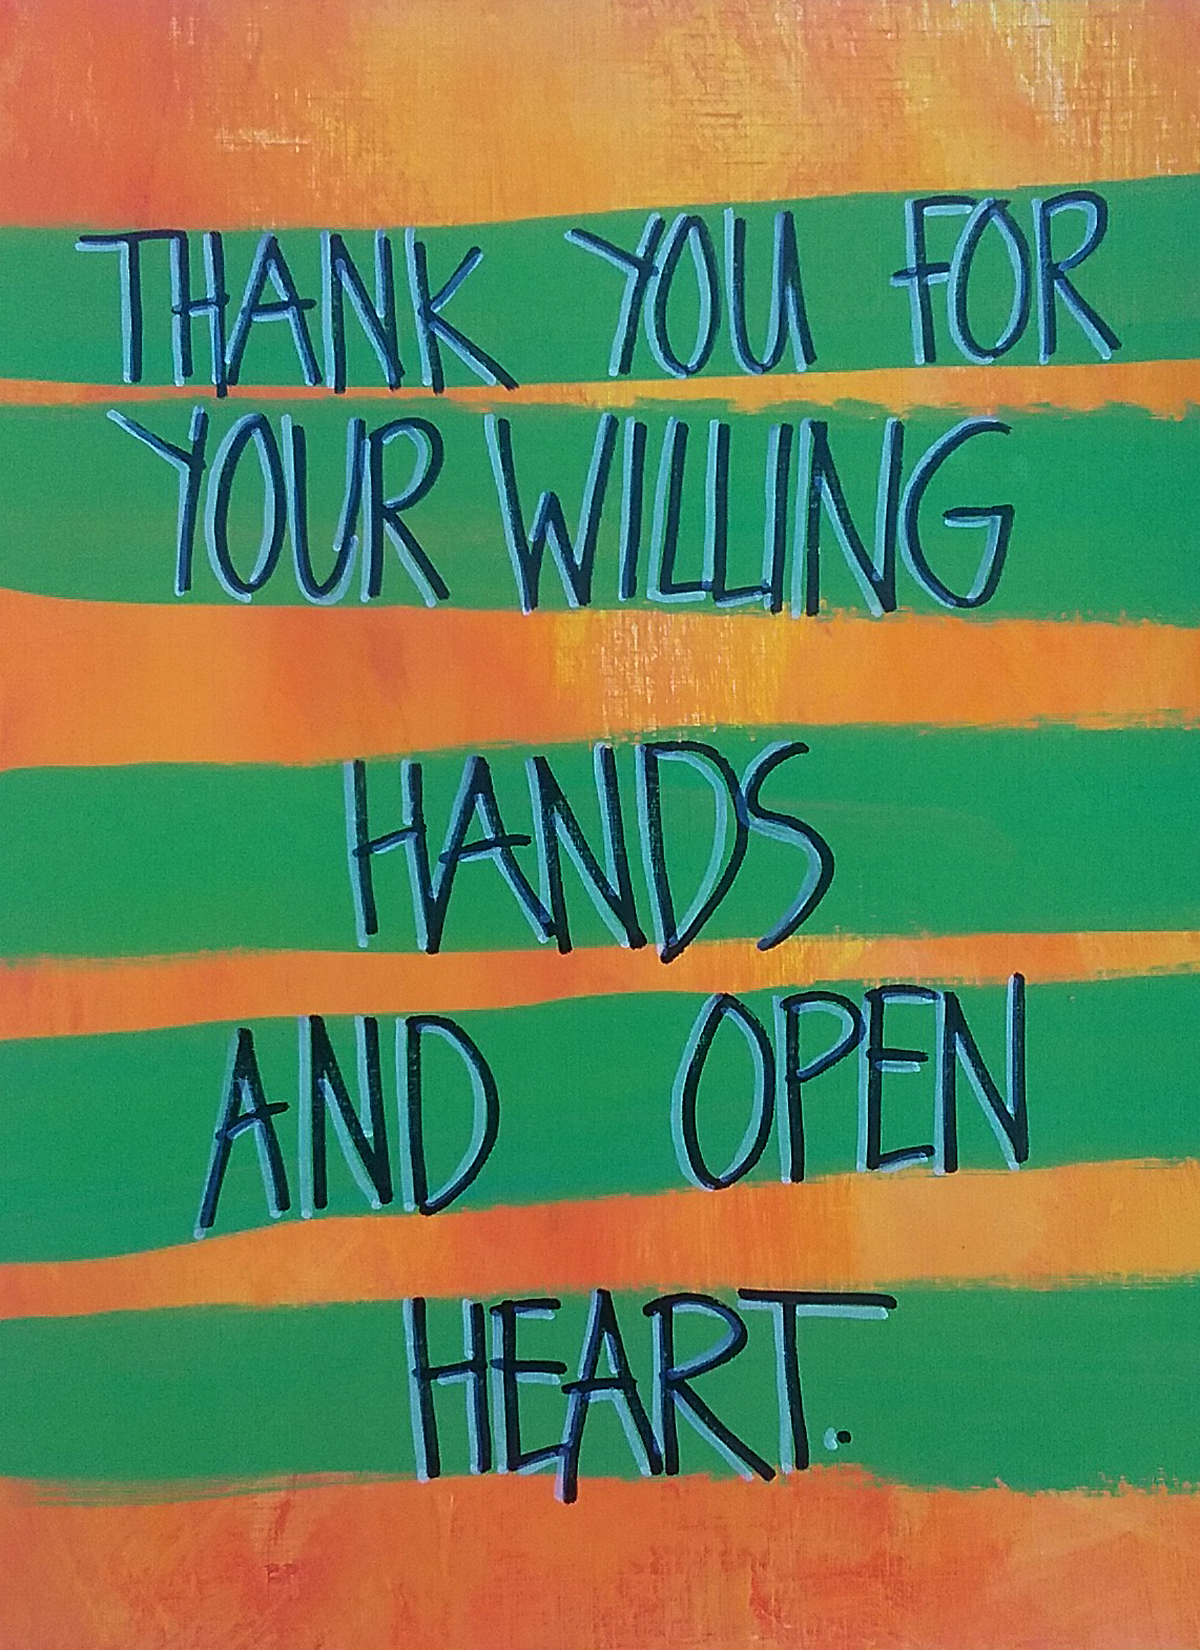 THANK YOU FOR
YOUR WILLING
HANDS
AND OPEN
HEART.